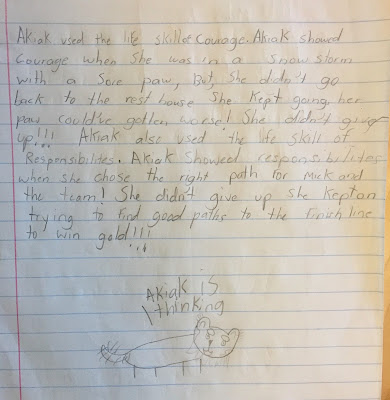 Akiak used the life skill of Courage. Akiak showed
Courage when she was in a snow storm
with a sore paw, But, she didn't go
back to the rest house she kept going, her
paw could've gotten worse! She didn't give
up!!! Akiak also used the life skill of
Responsibilites. Akiak showed responsibilites
when she chose the right path for Mick and
the team! She didn't give up she kept on
trying to find good paths to the finish line
to win gold!!!
Akiak is
thinking